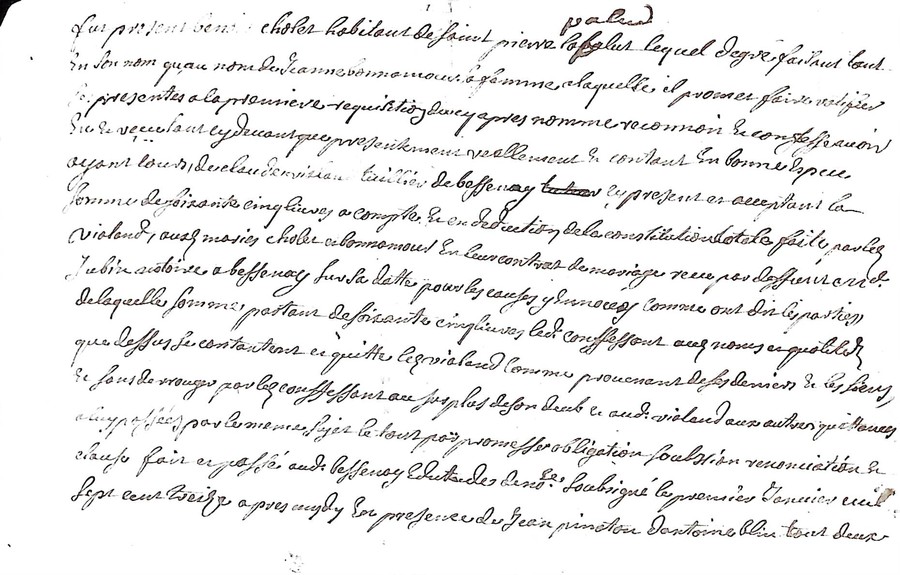 palud
fut present benoi cholet habitant de saint pierre la palut lequel de gré faisant tout
en son nom quau nom de Jeanne bonnamour sa femme a laquelle il promet faire ratiffier
les presentes a la premiere requisition du cy apres nomme reconnoit et confesse avoir
eu et reçeu tant cy devant que presentement reellement et contant en bonne espece
ayant cours, de claude violand tuillier de bessenay cy present et acceptant la
somme de soixante cinq livres a compte et en deduction de la constitution dotale faite par led
violand, auxd maries cholet et bonnamour en leur contrat de mariage receu par
Jubin notoire a bessenay sur sa datte pour les causes y Ennoces comme ont dit les parties
de laquelle somme partant de soixante cinq livres led. conffessant aux noms et qualites
que dessus se contantent et quitte led violand comme provenant de ses deniers et les siens,
et sans de rroger par led conffessant au surplus de son deub et aud. violand aux autres quittances
a luy passées par le meme sujet le tout par promesse obligation soubmission renonciation et
clause fait et passé aud. bessenay Estude de no.re soubsigné le premier Janvier mil
sept cent treize apres midy En presence de Jean pinton d'antoine blin tout deux